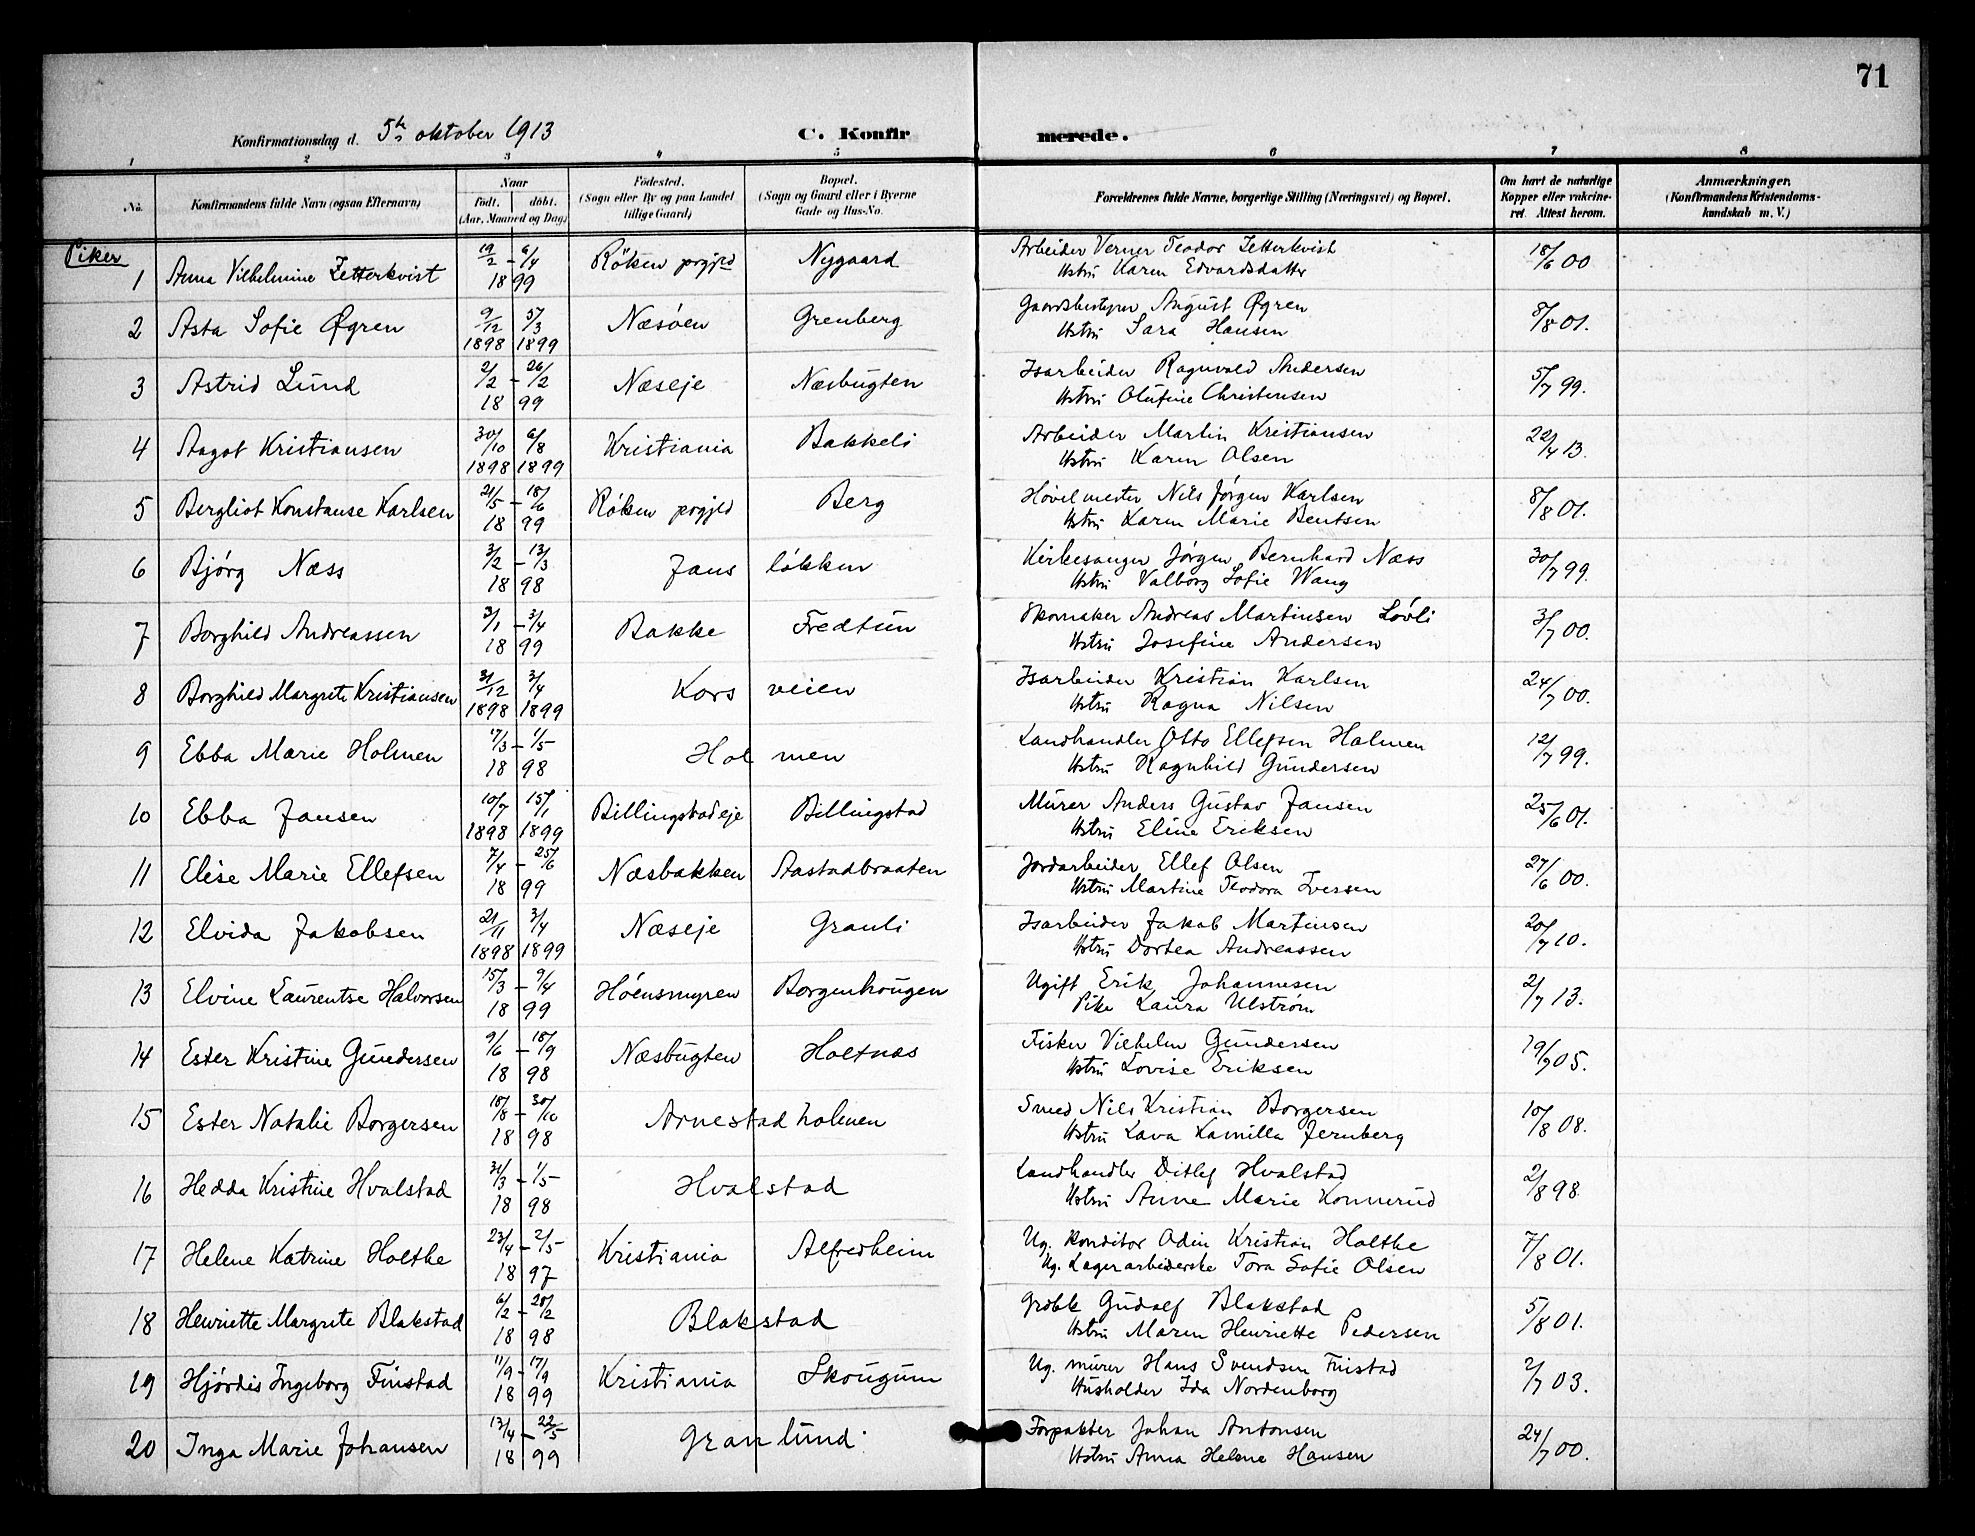 71
Konfirmationsdag d. 5te oktober 1913 C. Konfirmerede.
1 2 3 4 5 6 7 8
No. Konfirmandens fulde Navn (ogsaa Efternavn) Naar født. døbt. (Aar, Maaned og Dag) Fødested. (Sogn eller By og paa Landet tillige Gaard) Bopæl. (Sogn og Gaard eller i Byerne Gade og Hus-No. Forældrenes fulde Navne, borgerlige Stilling (Næringsvei) og Bopæl. Om havt de naturlige Kopper eller vakcineret. Attest herom. Anmærkninger. (Konfirmandens Kristendomskundskab m. V.)
Piker
1 Anna Vilhelmine Zetterkvist 19/2 - 6/4 1899 Röken prgjld Nygaard Arbeider Verner Teodor Zetterkvist 18/6 00
Hstru Karen Edvardsdatter
2 Asta Sofie Øgren 9/12 1898 5/3 1899 Næsöen Grenberg Gaardsbestyrer August Øgren 8/8 01.
Hstru Sara Hansen
3 Astrid Lund 2/2 - 26/2 1899 Næseje Næsbugten Isarbeider Ragnvald Andersen 5/7 99.
Hstru Olufine Christensen
4 Aagot Kristiansen 30/10 1898 6/8 1899 Kristiania Bakkeli Arbeider Martin Kristiansen 22/4 13.
Hstru Karen Olsen
5 Bergliot Konstanse Karlsen 21/5 - 18/6 1899 Röken prgjld Berg Hövelmester Nils Jørgen Karlsen 8/8 01.
Hstru Karen Marie Bentsen
6 Bjórg Næss 3/2 - 13/3 1898 Jans lökken Kirkesanger Jörgen Bernhard Næss 30/7 99.
Hstru Valborg Sofie Wang
7 Borghild Andreassen 3/1 - 3/4 1899 Bakke Fredtun Skomaker Andreas Martinsen Lövli 3/7 00.
Hstru Josefine Andersen
8 Borghild Margrete Kristiansen 31/12 1898 3/4 1899 Kors veien Isarbeider Kristian Karlsen 24/7 00.
Hstru Ragna Nilsen
9 Ebba Marie Holmen 17/3 - 1/5 1898 Hol men Landhandler Otto Ellefsen Holmen 12/7 99.
Hstru Ragnhild Gundersen
10 Ebba Jansen 10/7 1898 15/1 1899 Billingstadeje Billingstad Murer Anders Gustav Jansen 25/6 01.
Hstru Eline Eriksen
11 Elise Marie Ellefsen 7/4 - 25/6 1899 Næsbakken Aastadbraaten Jordarbeider Ellef Olsen 27/6 00.
Hstru Martine Teodora Iversen
12 Elvida Jakobsen 21/11 1898 3/4 1899 Næseje Granli Isarbeider Jakob Martinsen 20/7 10.
Hstru Dortea Andreassen
13 Elvine Laurentse Halvorsen 15/3 - 9/4 1899 Höensmyren Borgenhougen Ugift Erik Johannesen 2/7 13.
Pike Laura Ulström
14 Ester Kristine Gundersen 9/6 - 18/9 1898 Næsbugten Holtnæs Fisker Vilhelm Gundersen 19/7 05.
Hstru Lovise Eriksen
15 Ester Natalie Borgersen 18/8 - 30/10 1898 Arnestad holmen Smed Nils Kristian Borgersen 10/8 08.
Hstru Lava Kamilla Jernberg
16 Hedda Kristine Hvalstad 31/3 - 1/5 1898 Hvalstad Landhandler Ditlef Hvalstad 2/8 98
Hstru Anne Marie Konnerud
17 Helene Katrine Holthe 23/4 - 2/5 1897 Kristiania Alfredheim Ug. Konditor Odin Kristian Holthe 7/8 01.
Ug. Lagerarbeiderske Tora Sofie Olsen
18 Henriette Margrete Blakstad 6/2 - 20/2 1898 Blakstad Grdbk Gudolf Blakstad 5/8 01.
Hstru Maren Henriette Pedersen
19 Hjördis Ingeborg Finstad 11/9 - 17/9 1899 Kristiania Skougum Ug. murer Hans Svendsen Finstad 2/7 03.
Husholder Ida Nordenborg
20 Inga Marie Johansen 13/4 - 22/5 1899 Gran lund Forpakter Johan Antonsen 24/7 00.
Hstru Anna Helene Hansen